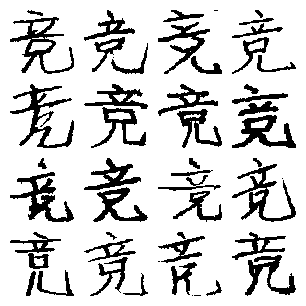 竞竞竞竞
竞竞竞竞
竞竞竞竞
竞竞竞竞